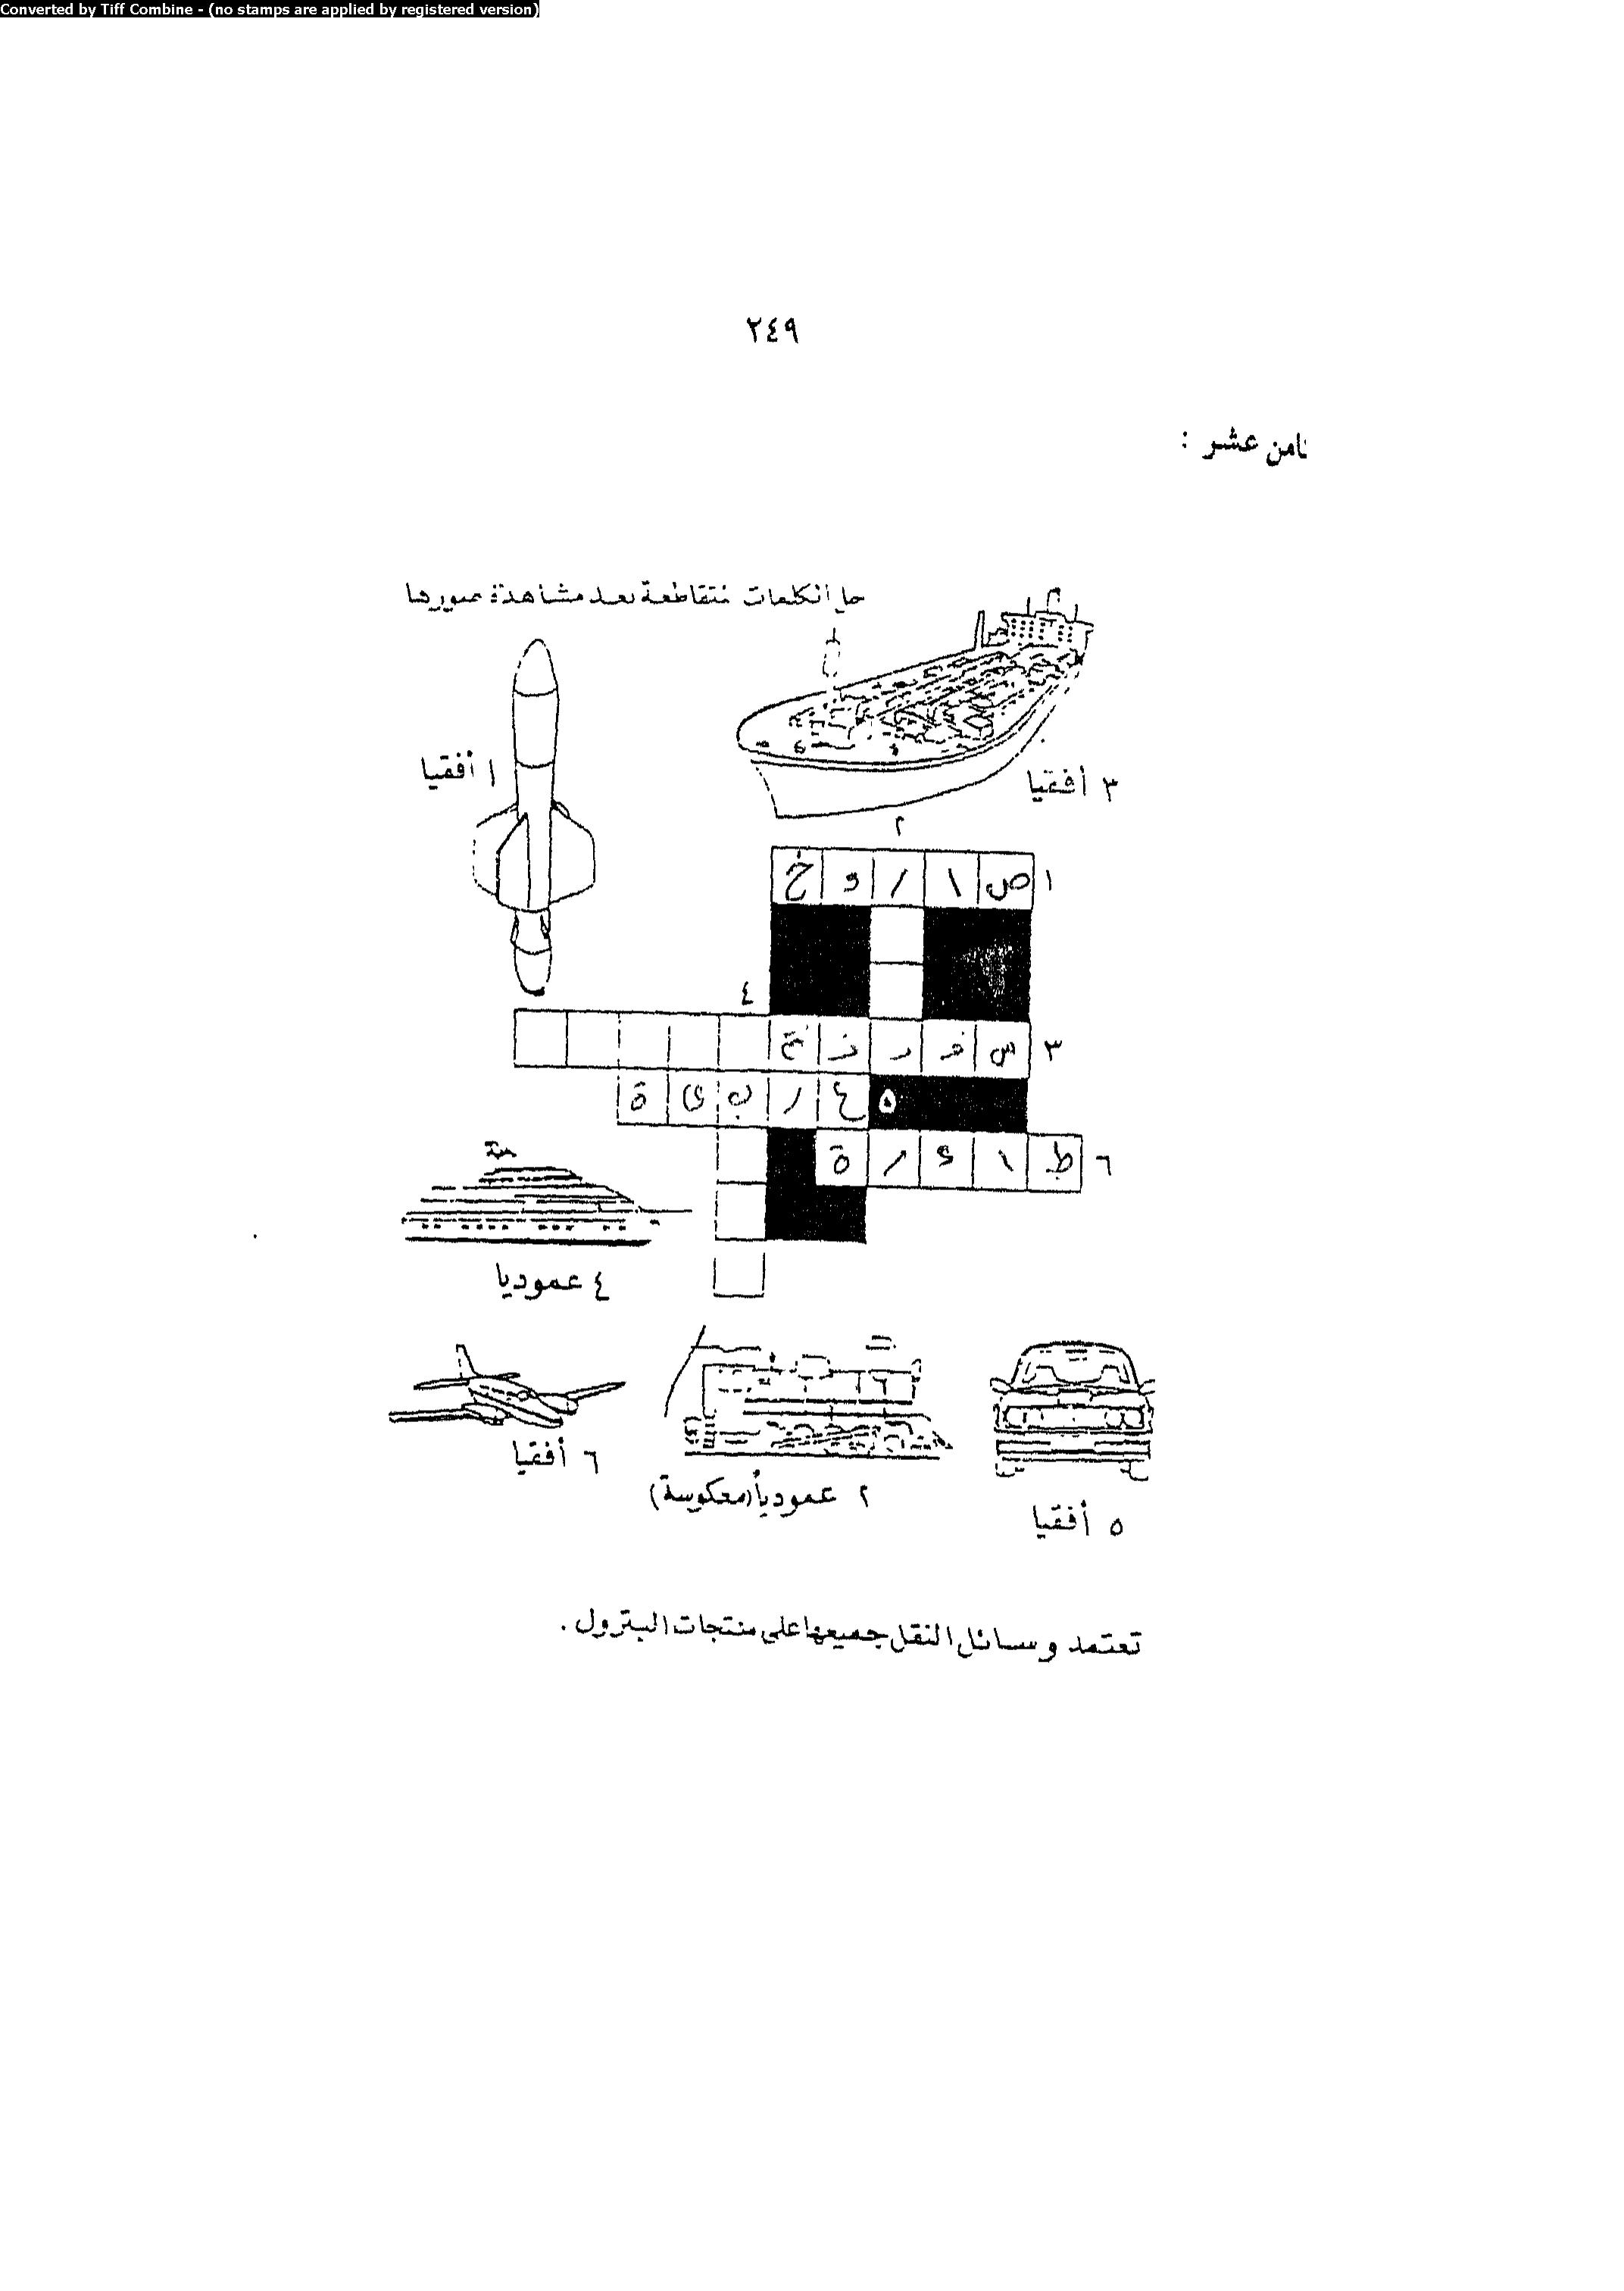 Converted by Tiff Combine - (no stamps are applied by registered version)
٢٤٩
ثامن عشر :
حل الكلمات متقاطعة بعد مشاهدة صورها
١ أفقيا
٣ أفقيا
٢
ص ا ر و خ ١
٤
٣
٥ ع ر ب ی ة
٦ ط ا ئ ر ة
٤ عموديا
٦ أفقيا
٢ عمودياً (معكوسة)
٥ أفقيا
تعتمد وسائل النقل جميعها على منتجات البترول .